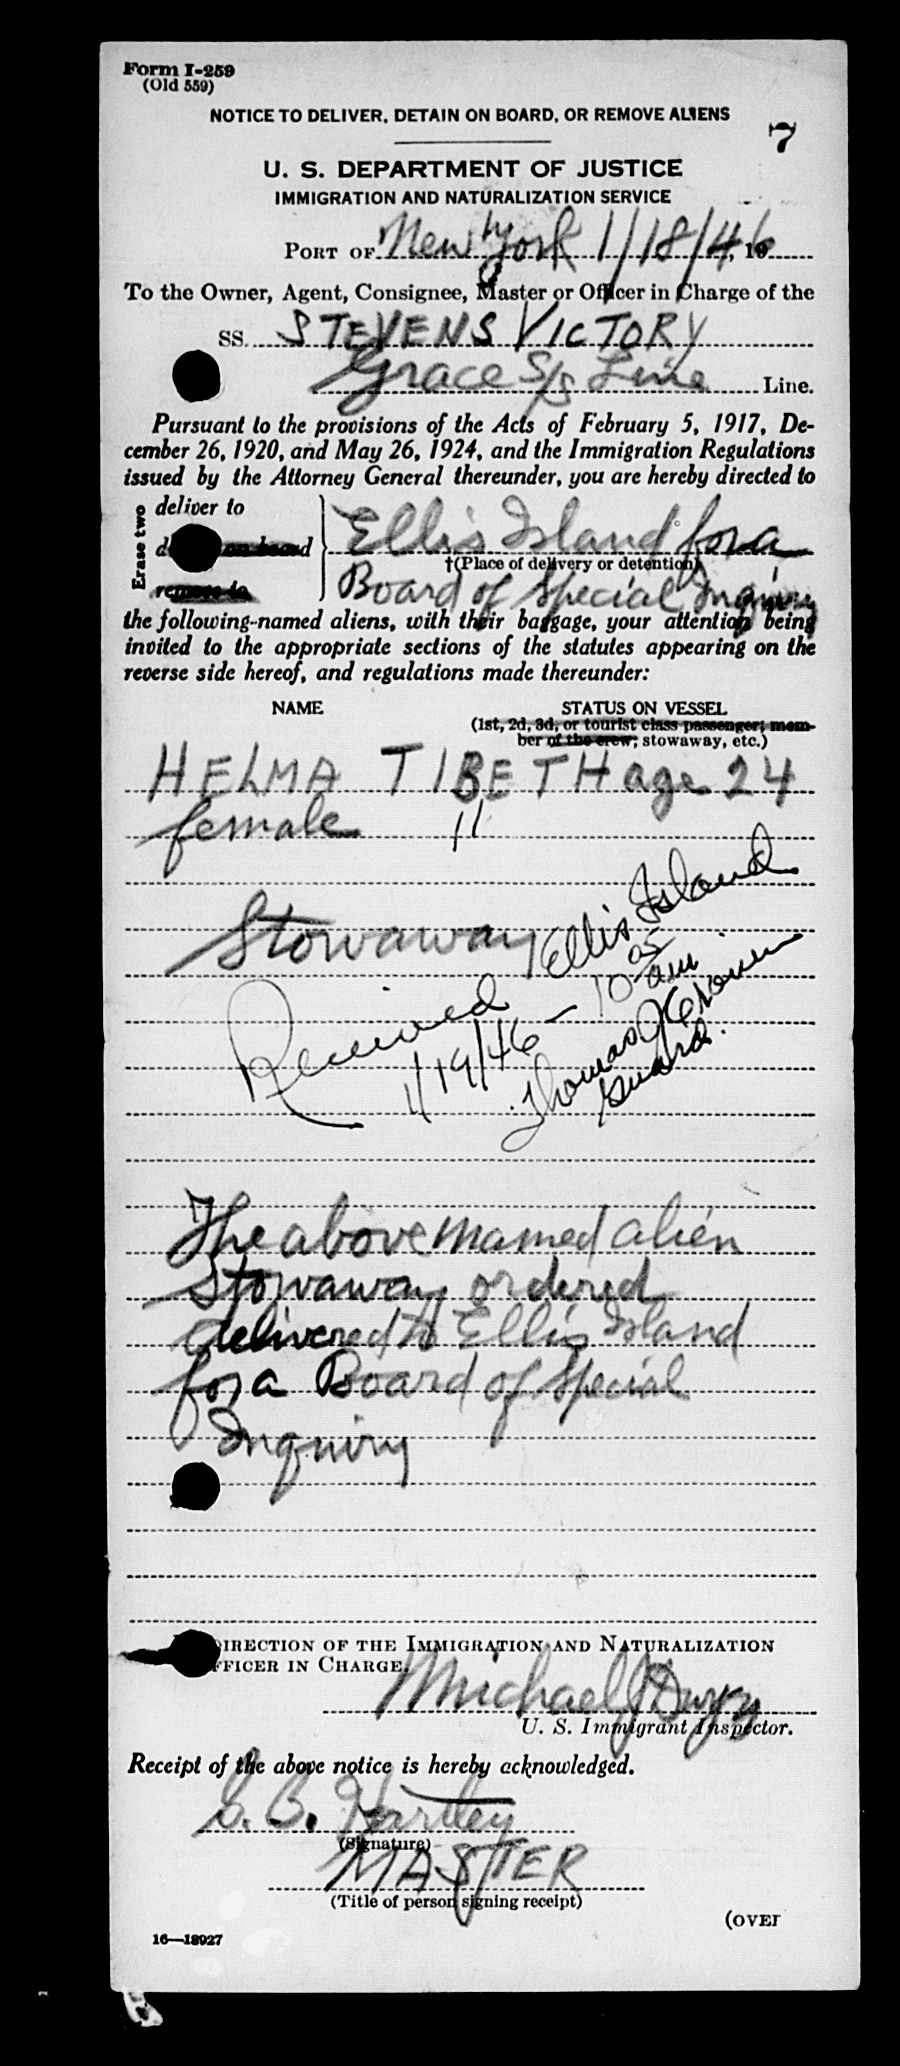 Form I-259
(Old 559)
NOTICE TO DELIVER, DETAIN ON BOARD, OR REMOVE ALIENS
7
U. S. DEPARTMENT OF JUSTICE
IMMIGRATION AND NATURALIZATION SERVICE
PORT OF New York NY 1/18/46, 19
To the Owner, Agent, Consignee, Master or Officer in Charge of the
SS. STEVENS VICTORY
Grace S/S Line Line.
Pursuant to the provisions of the Acts of February 5, 1917, De-
cember 26, 1920, and May 26, 1924, and the Immigration Regulations
issued by the Attorney General thereunder, you are hereby directed to
Erase two
deliver to
on board
remove to
Ellis Island for a
†(Place of delivery or detention)
Board of Special Inquiry
the following-named aliens, with their baggage, your attention being
invited to the appropriate sections of the statutes appearing on the
reverse side hereof, and regulations made thereunder:
NAME STATUS ON VESSEL
(1st, 2d, 3d, or tourist class passenger; mem-
ber of the crew; stowaway, etc.)
HELMA TIBETH age 24
female 11
Stowaway
Received Ellis Island
1/19/46 - 10 05 am
Thomas J Cronin
Guard.
The above named alien
stowaway ordered
delivered to Ellis Island
for a Board of Special
Inquiry
DIRECTION OF THE IMMIGRATION AND NATURALIZATION
OFFICER IN CHARGE.
Michael J
U. S. Immigrant Inspector.
Receipt of the above notice is hereby acknowledged.
C. B. Hartley
(Signature)
MASTER
(Title of person signing receipt)
(OVER
16—18927